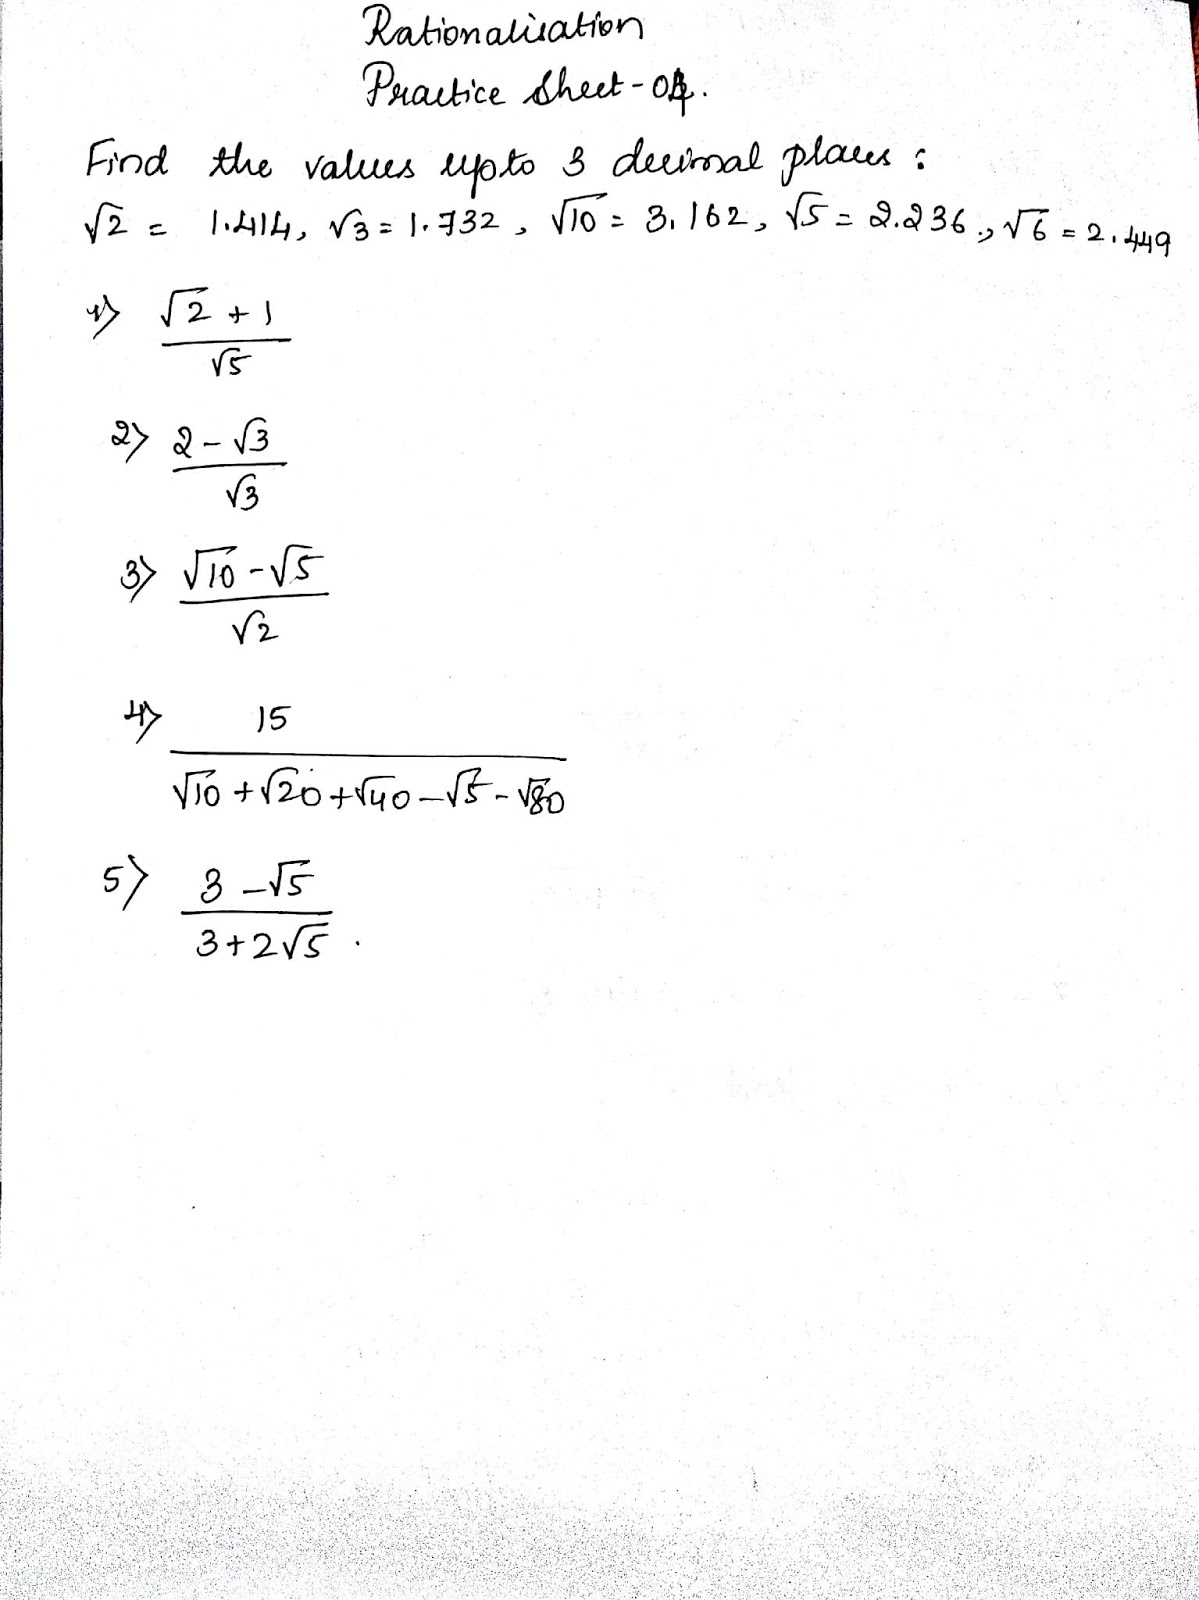 Rationalisation
Practice Sheet-04.
Find the values upto 3 decimal places :
√2 = 1.414, √3 = 1.732, √10 = 3.162, √5 = 2.236, √6 = 2.449
1) (√2 + 1)/√5
2) (2 - √3)/√3
3) (√10 - √5)/√2
4) 15/(√10 + √20 + √40 - √5 - √80)
5) (3 - √5)/(3 + 2√5).